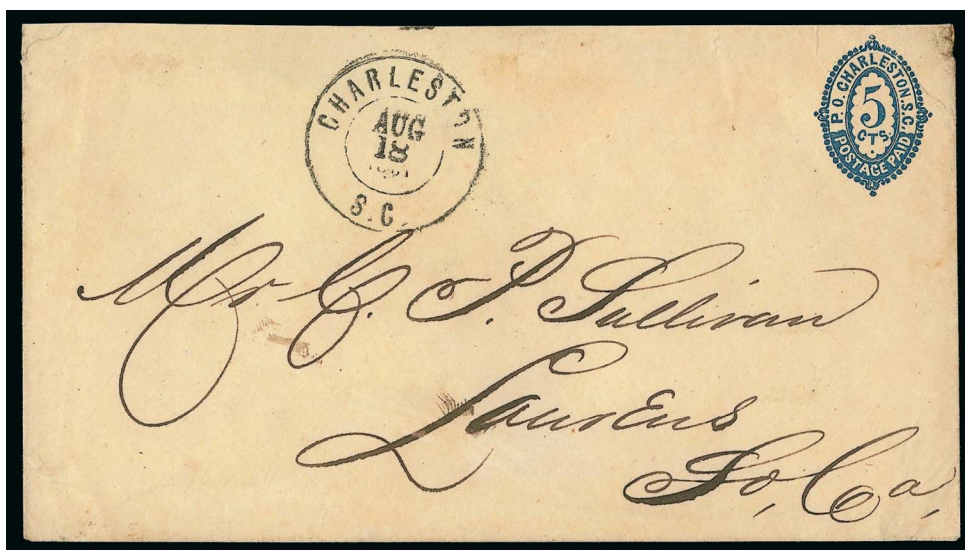 CHARLESTON
AUG
18
S.C.
P.O. CHARLESTON. S.C.
5
CTS.
POSTAGE PAID
Mr. C. P. Sullivan
Laurens
So, Ca,